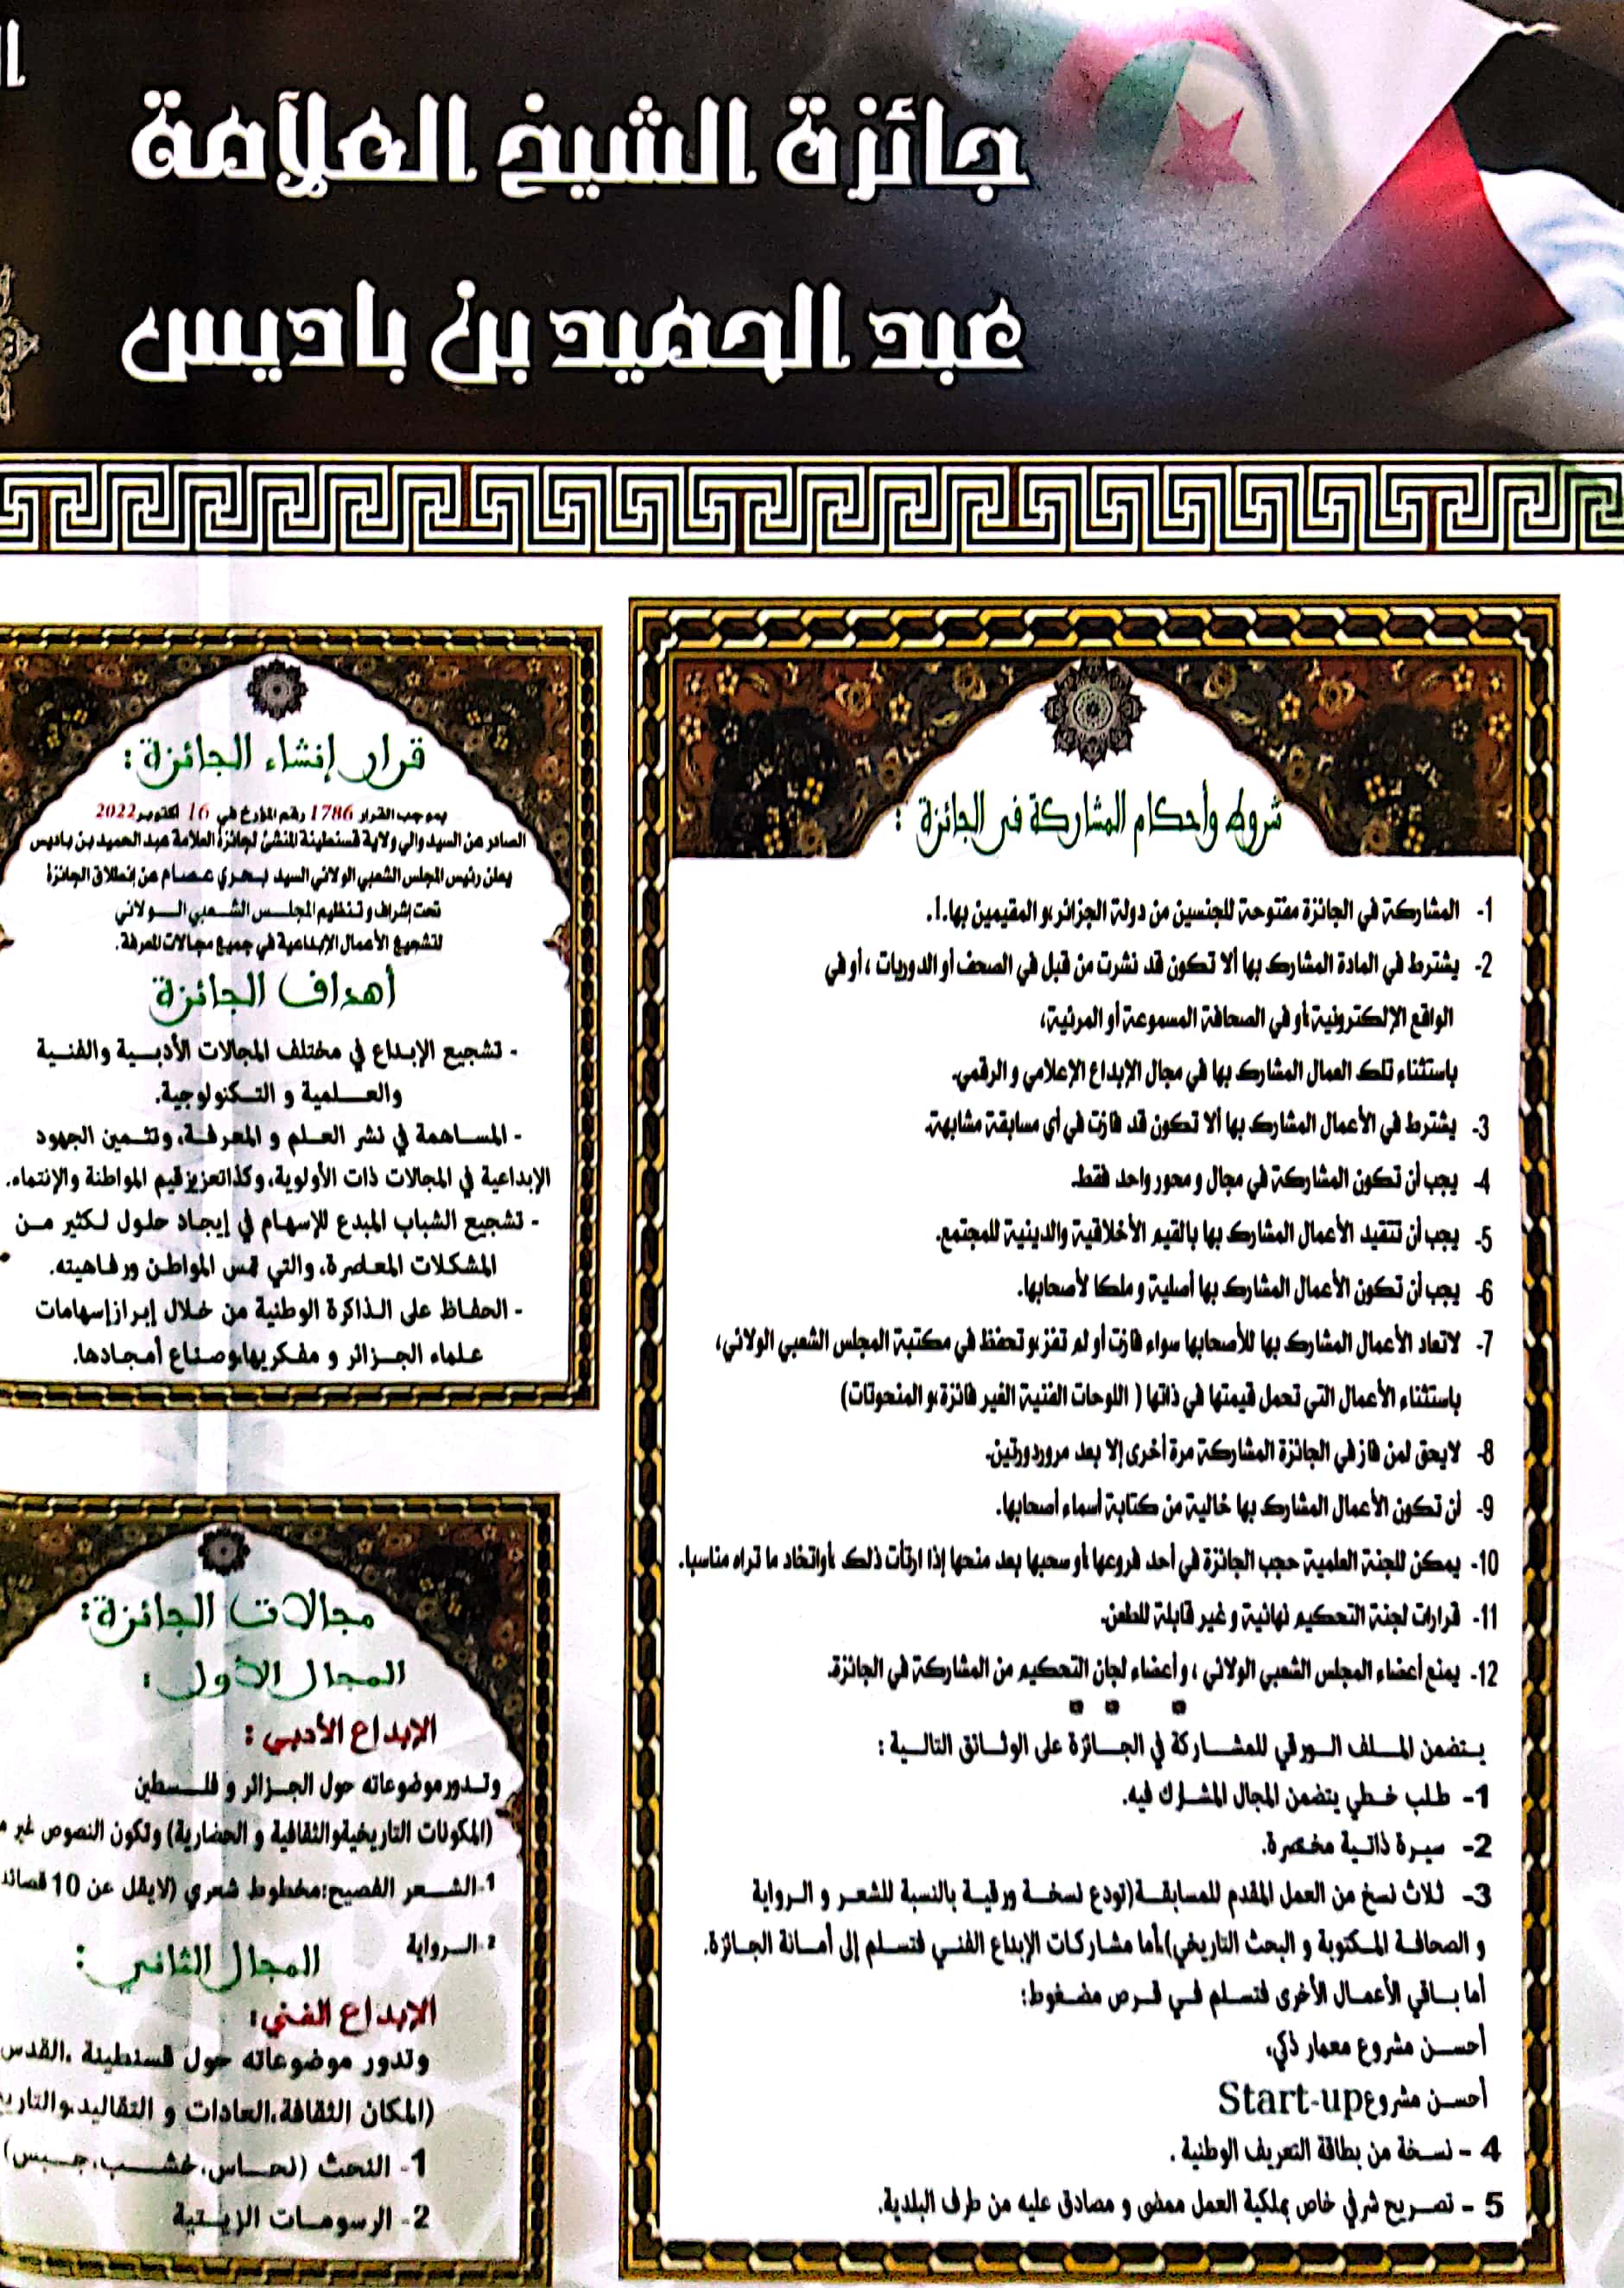 جائزة الشيخ العلامة
عبد الحميد بن باديس
شروط وأحكام المشاركة في الجائزة :
1- المشاركة في الجائزة مفتوحة للجنسين من دولة الجزائر،و المقيمين بها.1.
2- يشترط في المادة المشارك بها ألا تكون قد نشرت من قبل في الصحف أو الدوريات ، أو في
الواقع الإلكترونية،أو في الصحافة المسموعة أو المرئية،
باستثناء تلك العمال المشارك بها في مجال الإبداع الإعلامي و الرقمي.
3- يشترط في الأعمال المشارك بها ألا تكون قد فازت في أي مسابقة مشابهة.
4- يجب أن تكون المشاركة في مجال و محور واحد فقط.
5- يجب أن تتقيد الأعمال المشارك بها بالقيم الأخلاقية والدينية للمجتمع.
6- يجب أن تكون الأعمال المشارك بها أصلية و ملكا لأصحابها.
7- لاتعاد الأعمال المشارك بها للأصحابها سواء فازت أو لم تفز،و تحفظ في مكتبة المجلس الشعبي الولائي،
باستثناء الأعمال التي تحمل قيمتها في ذاتها ( اللوحات الفنية الغير فائزة،و المنحوتات)
8- لايحق لمن فاز في الجائزة المشاركة مرة أخرى إلا بعد مرور دورتين.
9- أن تكون الأعمال المشارك بها خالية من كتابة أسماء أصحابها.
10- يمكن للجنة العلمية حجب الجائزة في أحد فروعها ،أو سحبها بعد منحها إذا ارتأت ذلك ،أواتخاد ما تراه مناسبا.
11- قرارات لجنة التحكيم نهائية و غير قابلة للطعن.
12- يمنع أعضاء المجلس الشعبي الولائي ، و أعضاء لجان التحكيم من المشاركة في الجائزة.
يتضمن الملف الورقي للمشاركة في الجائزة على الوثائق التالية :
1- طلب خطي يتضمن المجال المشارك فيه.
2- سيرة ذاتية مختصرة.
3- ثلاث نسخ من العمل المقدم للمسابقة(تودع نسخة ورقية بالنسبة للشعر و الرواية
و الصحافة المكتوبة و البحث التاريخي)،أما مشاركات الإبداع الفني فتسلم إلى أمانة الجائزة.
أما باقي الأعمال الأخرى فتسلم في قرص مضغوط:
أحسن مشروع معمار ذكي،
أحسن مشروع Start-up
4 - نسخة من بطاقة التعريف الوطنية .
5 - تصريح شرفي خاص بملكية العمل ممضى و مصادق عليه من طرف البلدية.
قرار إنشاء الجائزة :
بموجب القرار 1786 رقم المؤرخ في 16 أكتوبر 2022
الصادر عن السيد والي ولاية قسنطينة المنشئ لجائزة العلامة عبد الحميد بن باديس
يعلن رئيس المجلس الشعبي الولائي السيد بحري عصام عن إنطلاق الجائزة
تحت إشراف و تنظيم المجلس الشعبي الولائي
لتشجيع الأعمال الإبداعية في جميع مجالات المعرفة.
أهداف الجائزة
- تشجيع الإبداع في مختلف المجالات الأدبية والفنية
والعلمية و التكنولوجية.
- المساهمة في نشر العلم و المعرفة، وتثمين الجهود
الإبداعية في المجالات ذات الأولوية، وكذا تعزيز قيم المواطنة والإنتماء.
- تشجيع الشباب المبدع للإسهام في إيجاد حلول لكثير من
المشكلات المعاصرة، والتي تمس المواطن ورفاهيته.
- الحفاظ على الذاكرة الوطنية من خلال إبراز إسهامات
علماء الجزائر و مفكريها،وصناع أمجادها.
مجالات الجائزة:
المجال الأول :
الإبداع الأدبي :
وتدور موضوعاته حول الجزائر و فلسطين
(المكونات التاريخية،والثقافية و الحضارية) وتكون النصوص غير
1- الشعر الفصيح:مخطوط شعري (لايقل عن 10 قصائد
2- الرواية
المجال الثاني :
الإبداع الفني:
وتدور موضوعاته حول قسنطينة ،القدس
(المكان الثقافة،العادات و التقاليد،والتاريخ
1- النحت (نحاس، خشب، جبس)
2- الرسومات الزيتية